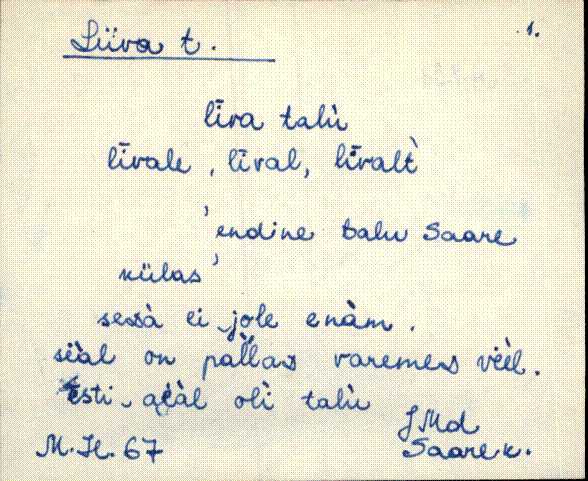 Liiva t.
1.
līva talù
līvale, līval, līvalt̀
'endine talu Saare
külas'
sessà ei jole enàm.
siàl on pal̀las varemes vèèl.
Esti aèàl olì talù
JMd
M.H. 67
Saare k.